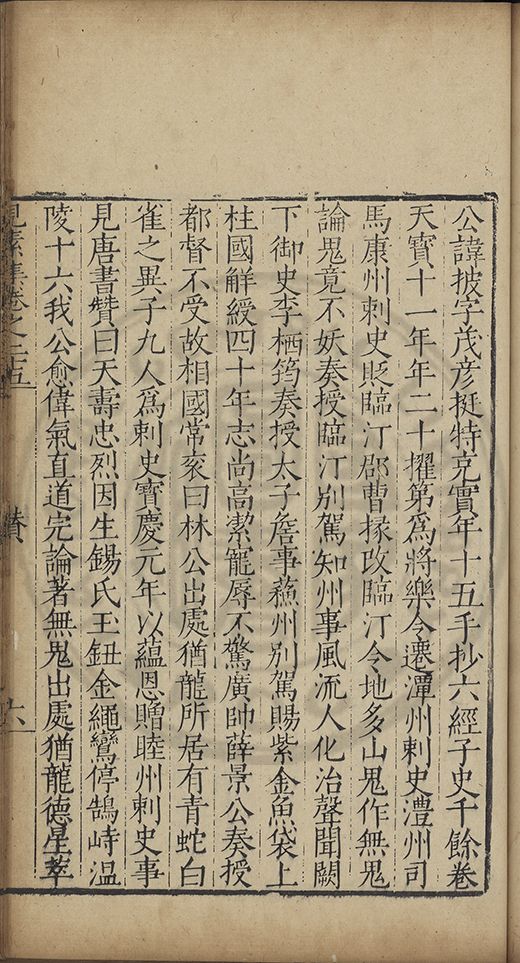 公諱披字茂彦挺特克實年十五手抄六經子史千餘卷
天寳十一年年二十擢第爲將樂令遷潭州刺史澧州司
馬康州刺史貶臨汀郡曹掾改臨汀令地多山鬼作無鬼
論鬼竟不妖奏授臨汀別駕知州事風流人化治聲聞闕
下御史李栖筠奏授太子詹事蘓州别駕賜紫金魚袋上
柱國觧綬四十年志尚高潔寵辱不驚廣帥薛景公奏授
都督不受故相國常衮曰林公出處猶龍所居有青蛇白
雀之異子九人爲刺史寳慶元年以蘊恩贈睦州刺史事
見唐書贊曰天壽忠烈因生錫氏玉鈕金繩鸞停鵠峙温
陵十六我公愈偉氣直道完論著無鬼出處猶龍德星萃
見素集卷之二十五
賛
六